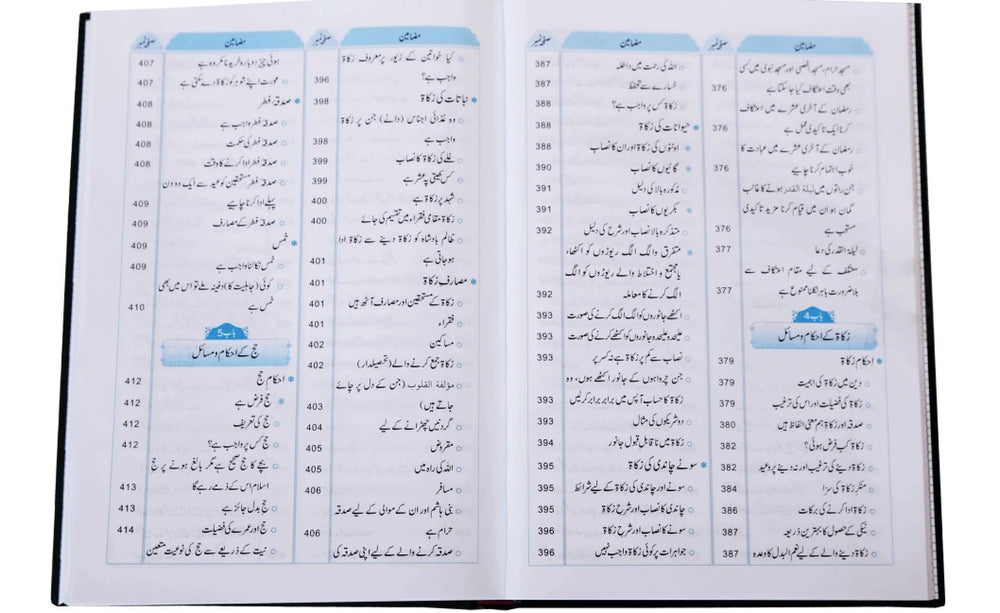 مضامین صفحہ نمبر
مسجد حرام، مسجد اقصیٰ اور مسجد نبوی میں کسی
بھی وقت اعتکاف کیا جا سکتا ہے 376
رمضان کے آخری عشرے میں اعتکاف
کرنا ایک تاکیدی عمل ہے 376
رمضان کے آخری عشرے میں عبادت کا
خوب اہتمام کرنا چاہیے 376
جن راتوں میں لیلۃ القدر ہونے کا غالب
گمان ہو ان میں قیام کرنا مزید تاکیدی
مستحب ہے 376
لیلۃ القدر کی دعا 377
معتکف کے لیے مقام اعتکاف سے
بلا ضرورت باہر نکلنا ممنوع ہے 377
باب 4
زکاۃ کے احکام و مسائل
احکام زکاۃ 379
دین میں زکاۃ کی اہمیت 379
زکاۃ کی فضیلت اور اس کی ترغیب 379
صدقہ اور زکاۃ ہم معنی الفاظ ہیں 380
زکاۃ کب فرض ہوئی؟ 382
زکاۃ دینے کی ترغیب اور نہ دینے پر وعید 382
منکر زکاۃ کی سزا 384
زکاۃ ادا کرنے کی برکات 386
نیکی کے حصول کا بہترین ذریعہ 387
زکاۃ دینے والے کے لیے نعم البدل کا وعدہ 387
مضامین صفحہ نمبر
اللہ کی رحمت میں داخلہ 387
خسارے سے تحفظ 387
زکاۃ کس پر واجب ہے؟ 388
حیوانات کی زکاۃ 388
اونٹوں کی زکاۃ اور ان کا نصاب 388
گائیوں کا نصاب 390
مذکورہ بالا کی دلیل 391
بکریوں کا نصاب 391
متذکرہ بالا نصاب اور شرح کی دلیل 392
متفرق و الگ الگ ریوڑوں کو اکٹھا،
یا مجتمع و اختلاط والے ریوڑ کو الگ
الگ کرنے کا معاملہ 392
اکٹھے جانوروں کو الگ الگ کرنے کی صورت 393
علیحدہ علیحدہ جانوروں کو اکٹھے کرنے کی صورت 393
نصاب سے کم پر زکاۃ ہے نہ کسر پر 393
جن چرواہوں کے جانور اکٹھے ہوں، وہ
زکاۃ کا حساب آپس میں برابر برابر کر لیں 393
دو شریکوں کی مثال 393
زکاۃ میں ناقابل قبول جانور 394
سونے چاندی کی زکاۃ 395
سونے اور چاندی کی زکاۃ کے لیے شرائط 395
چاندی کا نصاب اور شرح زکاۃ 395
سونے کا نصاب اور شرح زکاۃ 396
جواہرات پر کوئی زکاۃ واجب نہیں 396
مضامین صفحہ نمبر
کیا خواتین کے زیور پر معروف زکاۃ
واجب ہے؟ 396
نباتات کی زکاۃ 398
وہ غذائی اجناس (دانے) جن پر زکاۃ
واجب ہے 398
غلے کی زکاۃ کا نصاب 399
کس کھیتی پہ عشر ہے 399
شہد پر زکاۃ ہے 400
زکاۃ مقامی فقراء میں تقسیم کی جائے 400
ظالم بادشاہ کو زکاۃ دینے سے زکاۃ ادا
ہو جاتی ہے 401
مصارف زکاۃ 401
زکاۃ کے مستحقین اور مصارف آٹھ ہیں 401
فقراء 401
مساکین 402
زکاۃ جمع کرنے والے (تحصیلدار) 402
مؤلفۃ القلوب (جن کے دل پر چائے
جاتے ہیں) 403
گردنیں چھڑانے کے لیے 404
مقروض 405
اللہ کی راہ میں 405
مسافر 406
بنی ہاشم اور ان کے موالی کے لیے صدقہ
حرام ہے 406
صدقہ کرنے والے کے لیے اپنی صدقہ کی
مضامین صفحہ نمبر
ہوئی چیز دوبارہ خریدنا مکروہ ہے 407
عورت اپنے شوہر کو زکاۃ دے سکتی ہے 407
صدقۂ فطر 408
صدقۂ فطر واجب ہے 408
صدقۂ فطر کی حکمت 408
صدقۂ فطر ادا کرنے کا وقت 408
صدقۂ فطر مستحقین کو عید سے ایک دو دن
پہلے ادا کرنا چاہیے 409
صدقۂ فطر کے مصارف 409
خمس 409
خمس نکالنا واجب ہے 409
کوئی (جاہلیت کا) دفینہ ملے تو اس میں بھی
خمس ہے 410
باب 5
حج کے احکام و مسائل
احکام حج 412
حج فرض ہے 412
حج کی تعریف 412
حج کس پر واجب ہے؟ 412
بچے کا حج صحیح ہے مگر بالغ ہونے پر حج
اسلام اس کے ذمے رہے گا 413
حج بدل جائز ہے 413
حج اور عمرے کی فضیلت 414
نیت کے ذریعے سے حج کی نوعیت متعین